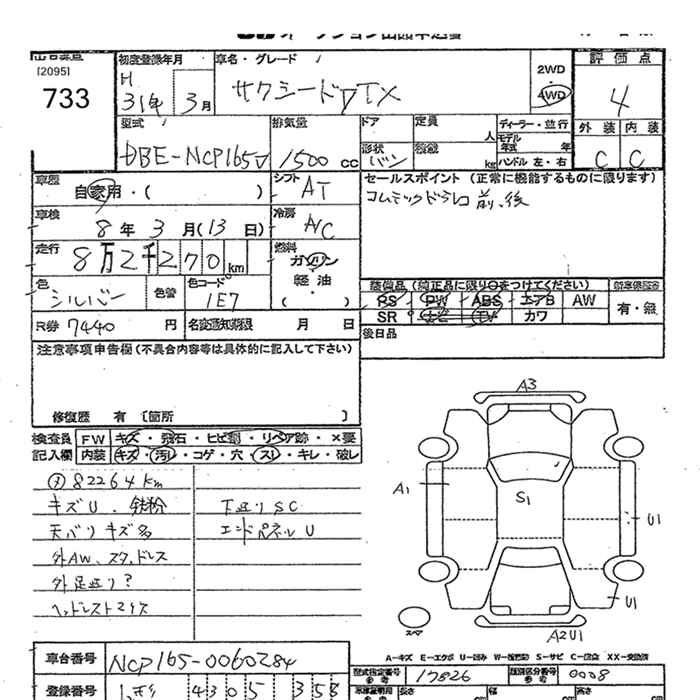 [2095]
733
初度登録年月
H 31年 3月
車名・グレード
サクシードTX
2WD
4WD
評価点
4
外装 内装
C C
型式
DBE-NCP165V
排気量
1500 cc
ドア
定員
人
形状
バン
kg
ディーラー・並行
モデル年式 年
ハンドル 左・右
車歴
自家用・( )
シフト
AT
セールスポイント (正常に機能するものに限ります)
コムテックドラレコ 前、後
車検
8年 3月(13日)
冷房
A/C
走行
8万2千270km
燃料
ガソリン
軽油
( )
色
シルバー
色替
色コード
1E7
装備品(純正品に限り○をつけてください)
PS PW ABS エアB AW
SR ナビ TV カワ
有・無
R券 7440 円
名変期限 月 日
後日品
注意事項申告欄(不具合内容等は具体的に記入して下さい)
修復歴 有 〔箇所 〕
検査員 FW キズ・飛石・ヒビ割・リペア跡・×要
記入欄 内装 キズ・汚レ・コゲ・穴・スレ・キレ・破レ
メ 82264km
キズU、鉄粉
天バリキズ多
外AW、スタッドレス
外足廻り?
ヘッドレスト2ケ欠
下廻りSC
エンドパネルU
A3
A1
S1
U1
U1
A2U1
スペア
A-キズ E-エクボ U-凹み W-板金跡 S-サビ C-腐食 XX-交換済
車台番号
NCP165-0060284
型式指定番号
17826
類別区分番号
0008
登録番号
4305 358
長さ
幅
高さ